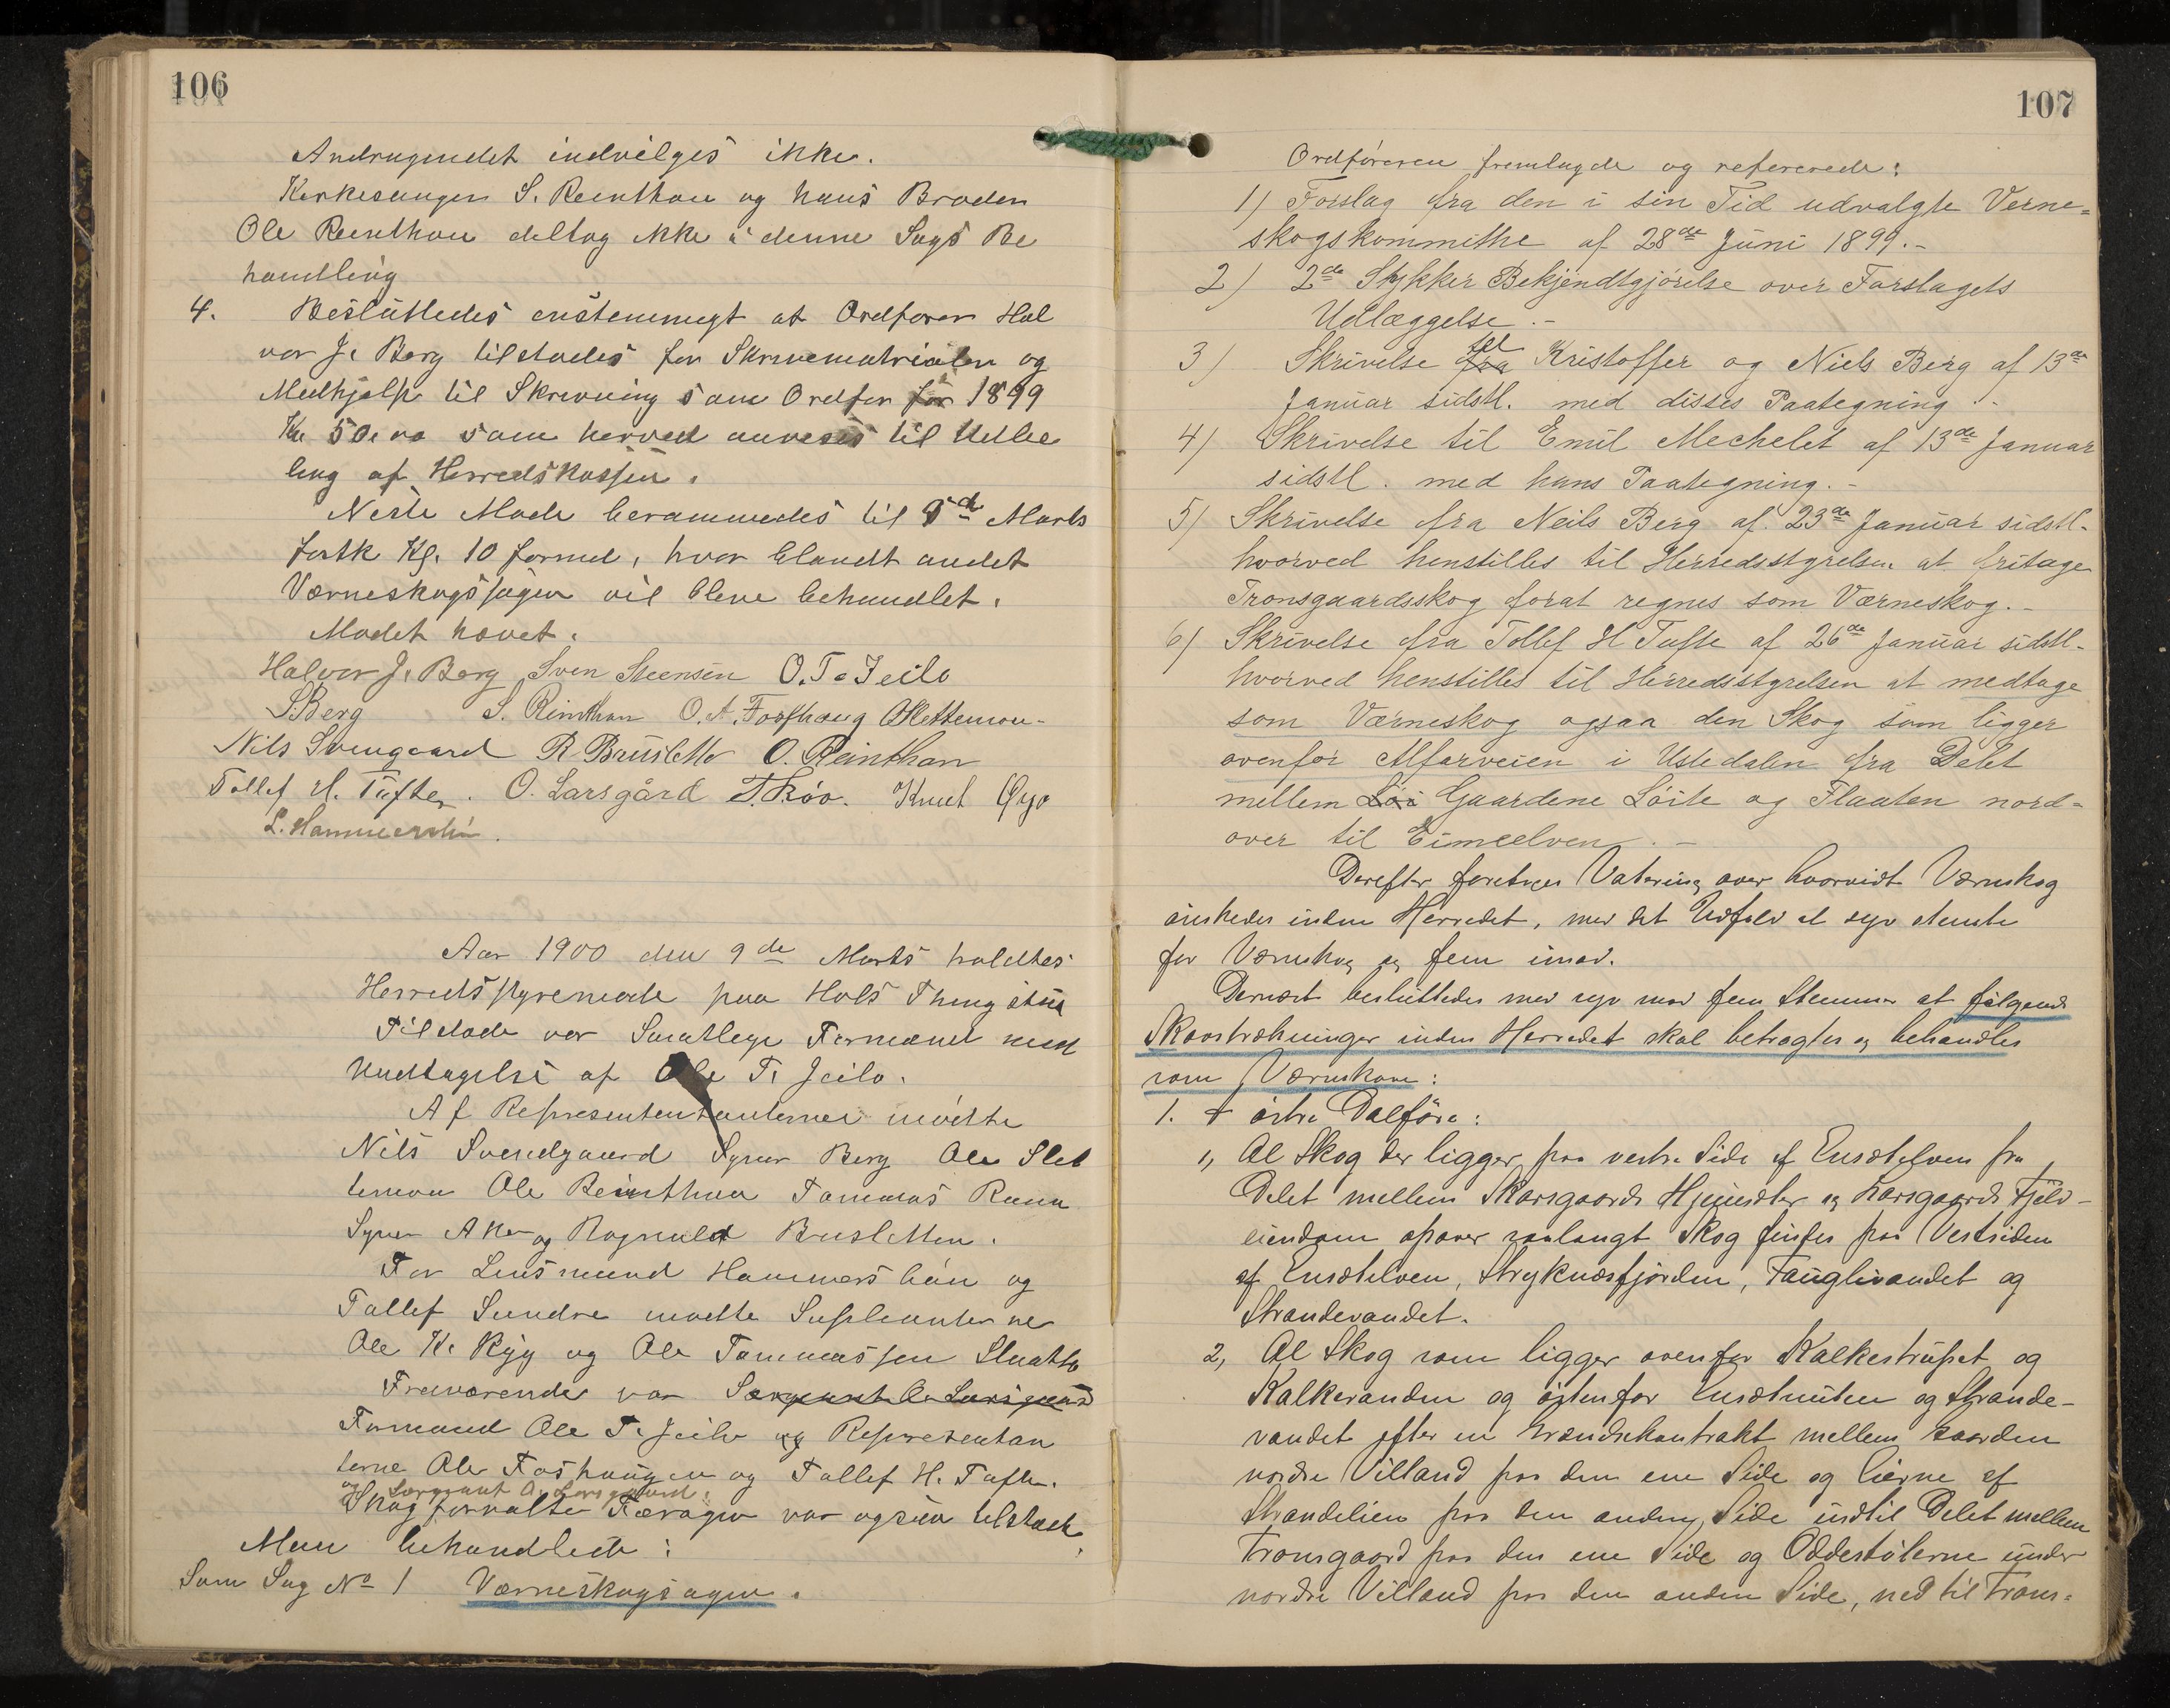 106
Andragendet indvilges ikke.
Kirkesanger S. Reinthon og hans Broder
Ole Reinthon deltog ikke i denne Sags Be
handling
4. Beslutledes enstemmigt at Ordfører Hal
vor J. Berg tilstades for Skrivematrialer og
Medhjælp til Skrivning som Ordfør for 1899
Kr 50.00 som herved anvises til Udbe
ling af Herredskassen.
Neste Møde berammedes til 9de Marts
førstk Kl. 10 formd, hvor blandt andet
Værneskogssagen vil blive behandlet.
Mødet hævet.
Halvor J. Berg Sven Steensen O. T. Jeilo
S. Berg S. Rinthon O. A. Fosshaug O Slettemoen
Nils Svengaard R Brusletto O. Reinthon
Tollef H. Tufte. O. Larsgård T. Røo. Knut Øyo
L. Hammersbøn.
Aar 1900 den 9de Marts holdtes
Herredsstyremøde paa Hols Thingstua
Tilstede var Samtlege Formænd med
Undtagelse af Ole T. Jeilo.
Af Represententanterne mødte
Nils Svendgaard Syver Berg Ole Slet
temoen Ole Reinthon Tommas Ruu
Syver Aker og Ragnvald Brusletten.
For Lensmand Hammersbøn og
Tollef Sundre mødte Suplianterne
Ole K. Rygg og Ole Tommassen Slaatto
Fraværende var Sergeant O. Larsgaard
Formand Ole T. Jeilo og Representan
terne Ole Foshaugen og Tollef H. Tufte.
og Sergeant O. Larsgaard.
Skogforvalter Færagen var ogsaa tilstede,
Man behandlede:
Som Sag No 1 Værneskogsagen.
107
Ordføreren fremlagde og refererede:
1) Forslag fra den i sin Tid udvalgte Verne=
skogskommithe af 28de Juni 1899.-
2) 2de Stykker Bekjendtgjørelse over Forslagets
Udlæggelse.-
3) Skrivelse fra til Kristoffer og Niels Berg af 13de
Januar sidstl. med disses Paategning.-
4) Skrivelse til Emil Mechelet af 13de Januar
sidstl. med hans Paategning.-
5) Skrivelse fra Neils Berg af 23de Januar sidstl.
hvorved henstilles til Herredsstyrelsen at fritage
Tronsgaardsskog forat regnes som Værneskog.-
6) Skrivelse fra Tollef H Tufte af 26de Januar sidstl.
hvorved henstilles til Herredsstyrelsen at medtage
som Værneskog ogsaa den Skog som ligger
ovenfor Alfarveien i Ustedalen fra Delet
mellem Løi Gaardene Løite og Flaaten nord=
over til Eimeelven.-
Derefter foretoges Votering over hvorvidt Værnskog
ønskedes inden Herredet, med det Udfald at syv stemte
for Værnskog og fem imod.
Dernæst besluttedes med syv mod fem Stemmer at følgende
Skovstrækninger inden Herredet skal betragtes og behandles
som Værnskove:
1. I østre Dalføre:
1, Al Skog der ligger paa vestre Side af Ensætelven fra
Delet mellem Skarsgaards Hjemsæter og Larsgaards Fjeld-
eiendom opover saalangt Skog findes paa Vestsiden
af Ensætelven, Stryknæsfjorden, Fauglivandet og
Strandevandet.
2, Al Skog som ligger ovenfor Kalkestrupet og
Kalkeranden og østenfor Ensætnuten og Strande-
vandet efter en Grændsekontrakt mellem Gaarden
nordre Villand paa den ene Side og Eierne af
Strandelien paa den anden Side indtil Delet mellem
Tronsgaard paa den ene Side og Oddestølerne under
nordre Villand paa den anden Side, ned til Trons=